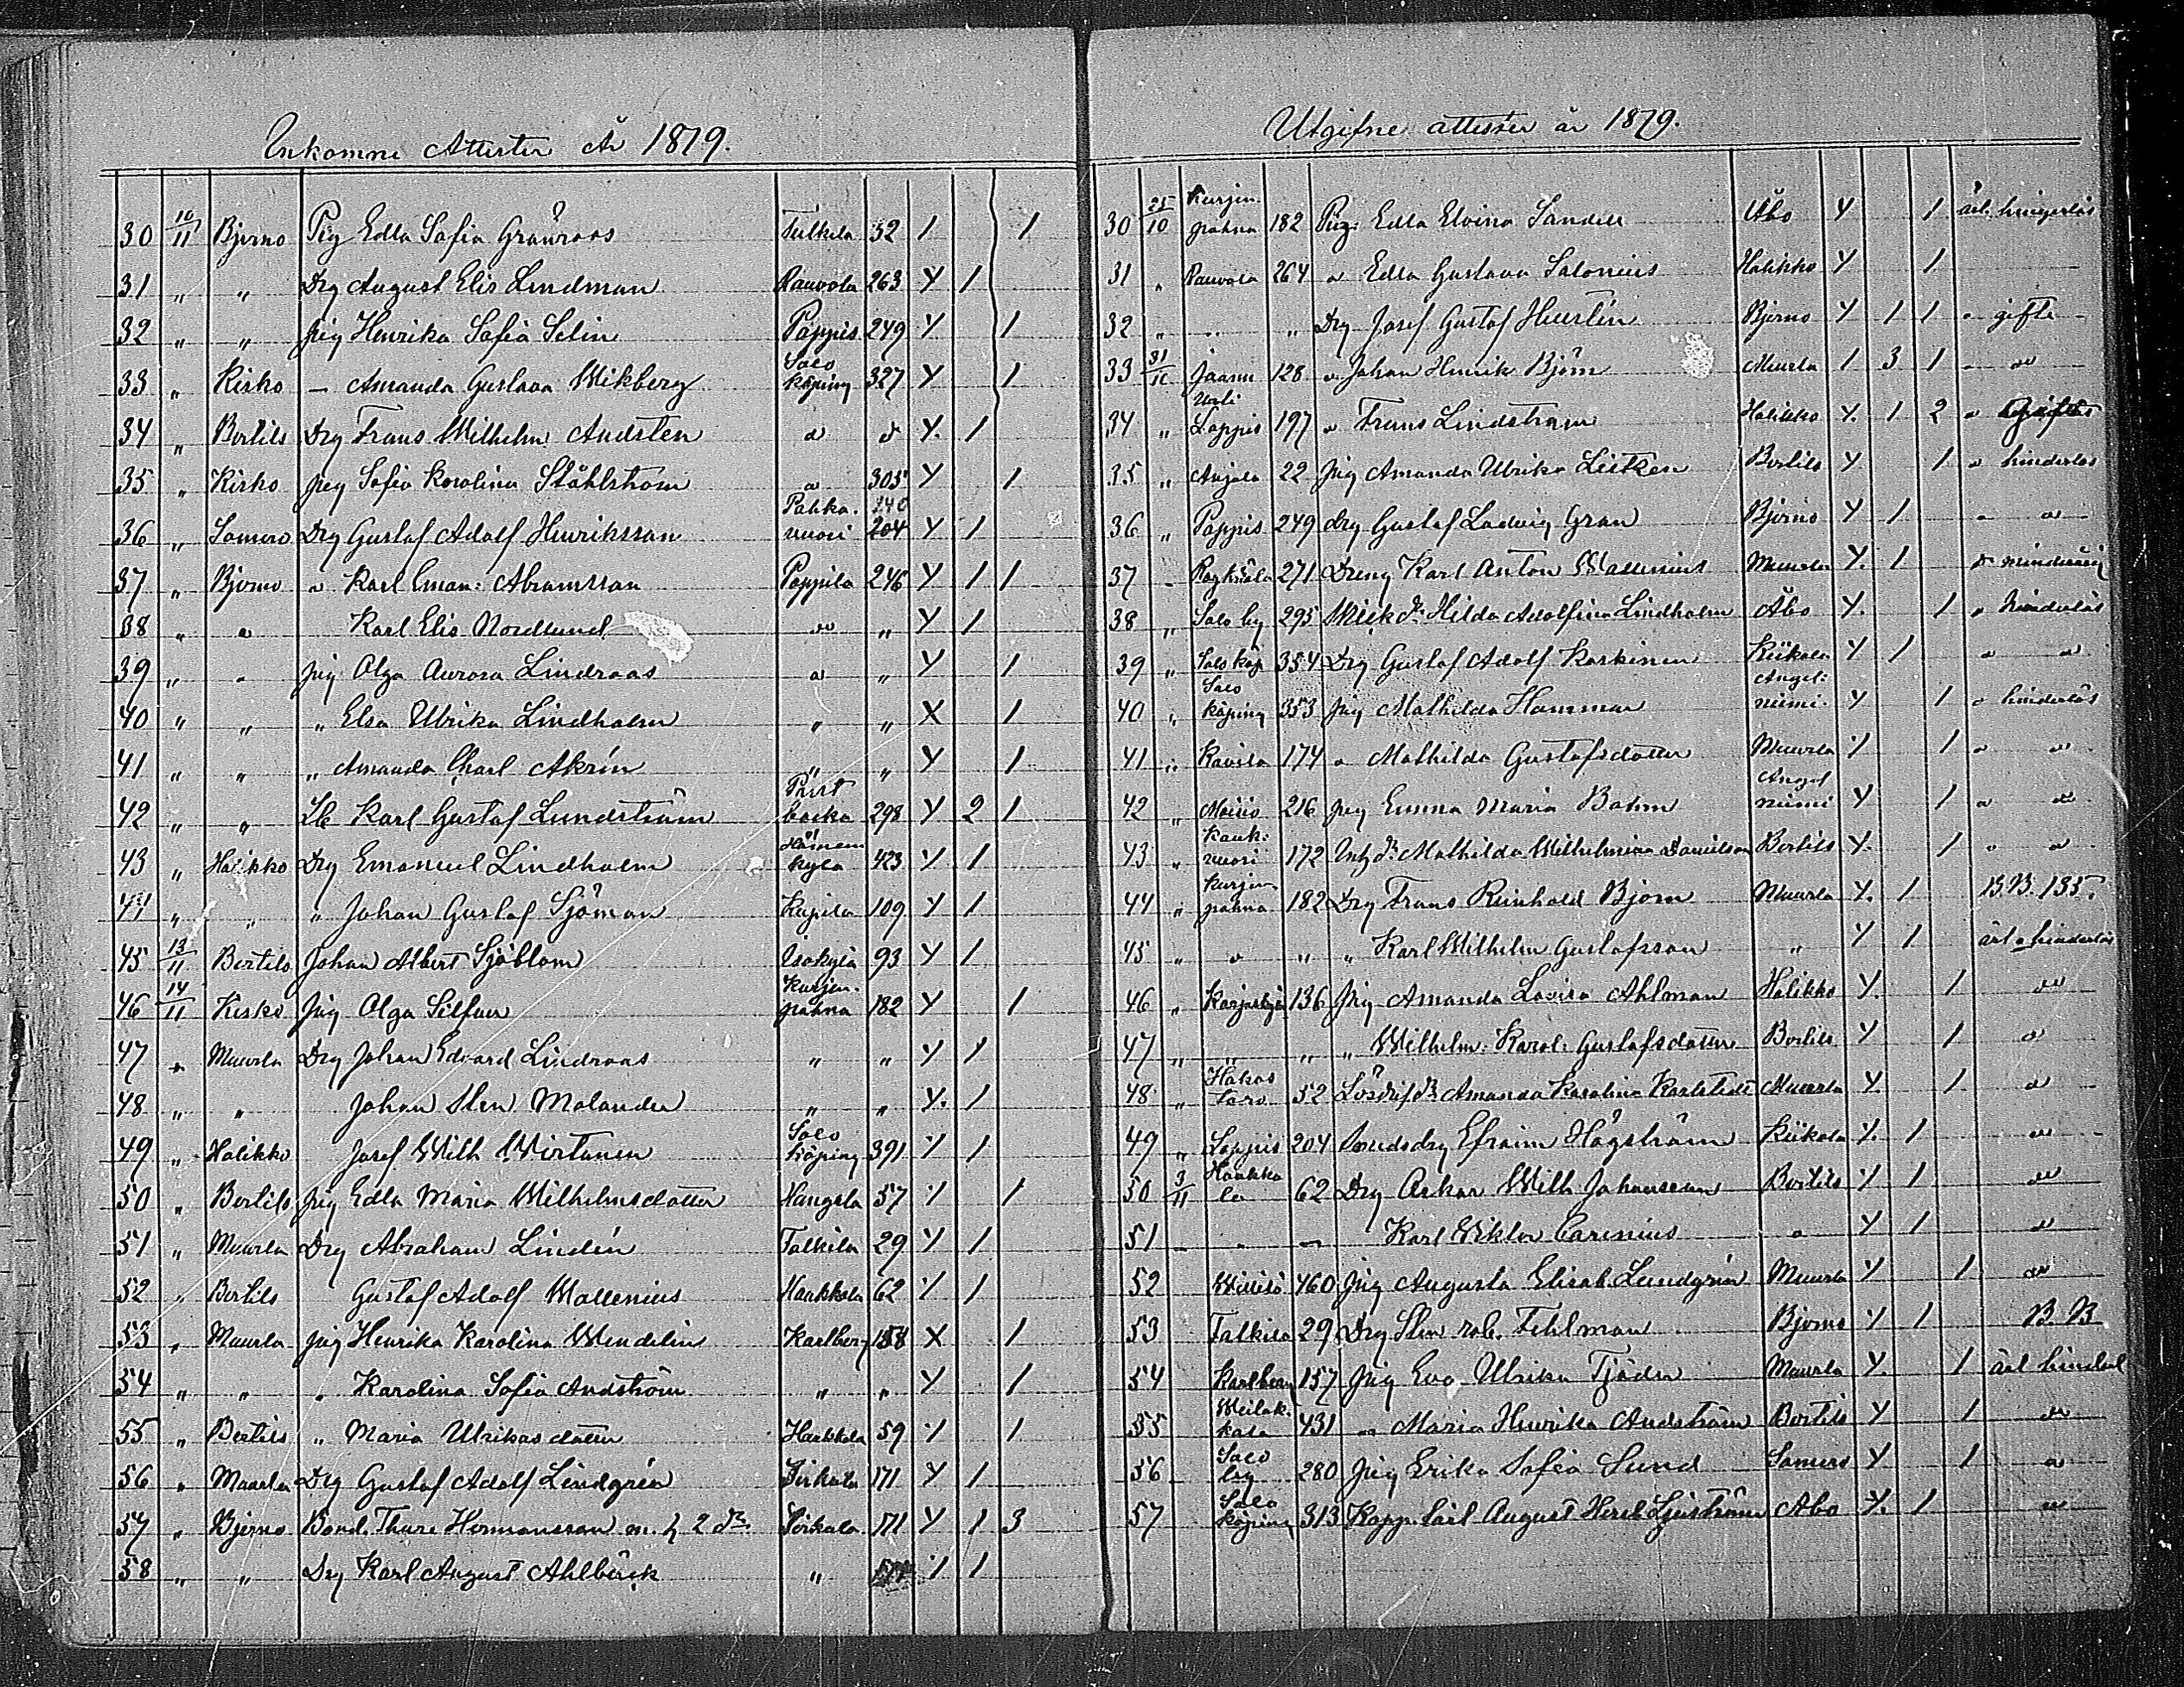 Inkomne Attester År 1879.
30 10/11 Bjerno Pig Edla Sofia Granroos Tulkila 32 / /
31 „ „ Drg August Elis Lindman Rauvola 263 Y /
32 „ „ Pig Henrika Sofia Selin Pappis 249 Y /
33 „ Kisko — Amanda Gustava Wikberg Salo köping 327 Y /
34 „ Bertils Drg Frans Wilhelm Andsten d d Y. /
35 „ Kisko Pig Sofia Karolina Ståhlström d 305 Y /
36 „ Somero Drg Gustaf Adolf Henriksson Pahka. vuori 246 204 Y /
37 „ Bjerno d Karl Eman: Abramsson Pappila 246 Y / /
38 „ d Karl Elis Nordlund d „ Y /
39 „ „ Pig Olga Aurora Lindroos d „ Y /
40 „ „ „ Elsa Ulrika Lindholm „ „ X /
41 „ „ „ Amanda Charl Akrén „ „ Y /
42 „ „ Karl Gustaf Lundström backa 298 Y 2 /
43 „ Halikko Drg Emanuel Lindholm Hämeen kylä 423 Y /
44 „ „ „ Johan Gustaf Sjöman Kupila 109 Y /
45 13/11 Bertils Johan Albert Sjöblom Isokylä 93 Y /
46 14/11 Kisko Pig Olga Selfver Kurjen- pahna 182 Y /
47 „ Muurla Drg Johan Edvard Lindroos „ „ Y /
48 „ „ Johan Sten Molander „ „ Y. /
49 „ Halikko Josef Wilh Wirtanen Salo köping 391 Y /
50 „ Bertils Pig Edla Maria Wilhelmsdotter Hangela 57 Y /
51 „ Muurla Drg Abraham Lindén Talkila 29 Y /
52 „ Bertils Gustaf Adolf Wallenius Haukkala 62 Y /
53 „ Muurla Pig Henrika Karolina Wendelin Karlberg 158 X /
54 „ „ „ Karolina Sofia Andström „ „ Y /
55 „ Bertils „ Maria Ulrikasdotter Haukkala 59 Y /
56 „ Muurla Drg Gustaf Adolf Lindgrén Sirkula 171 Y /
57 „ Bjerno Bond. Thure Hermansson m. h 2 dr Sirkula 171 Y 1 3
58 „ „ Drg Karl August Ahlbäck „ Y /
Utgifne attester år 1879.
30 25/10 Kurjen pahna 182 Pig: Edla Elvina Sandell Åbo Y 1
31 „ Rauvola 264 d Edla Gustava Salonius Halikko Y 1
32 „ „ „ Drg Josef Gustaf Hellstén Bjerno Y 1 1 „ gifte
33 31/10 Jaann 128 d Johan Henrik Björn Muurla 1 3 1 „ d
34 „ Uuli Loppis 197 d Frans Lindström Halikko Y. 1 2 d
35 „ Anjala 22 Pig Amanda Ulrika Leitzen Bertils Y 1 d hinderlös
36 „ Pappis 249 drg Gustaf Ludvig Gran Bjerno Y 1 „ d
37 „ 271 Dreng Karl Anton Wallenius Muurla Y. 1 d
38 „ Salo by 295 Hilda Adolfina Lindholm Åbo Y. 1 „ hinderlös
39 „ Salo köp 354 Drg Gustaf Adolf Koskinen Kiikala Y 1 d d
40 „ Salo köping 353 Pig Mathilda Hammar Angel: niemi. Y 1 d hinderlös
41 „ Kavila 174 d Mathilda Gustafsdotter Muurla Y 1 d d
42 „ Moisio 216 Pig Emma Maria Bohm Angel niemi Y 1 d d
43 „ Kauk: vuori 172 Mathilda Wilhelmina Danielson Bertils Y. 1 „ d
44 „ Kurjen pahna 182 Drg Frans Reinhold Björn Muurla Y. 1 B.B. 135.
45 „ d „ „ Karl Wilhelm Gustafsson „ Y 1 ärl o hinderlös
46 „ Karjaskylä 136 Pig Amanda Lovisa Ahlman Halikko Y. 1 d
47 „ „ „ „ Wilhelm: Karol: Gustafsdotter Bertils Y 1 d
48 „ Hakas taro 52 Amanda Karolina Karlstedt Muurla Y. 1 d
49 „ Loppis 204 Smedsdrg Efraim Högström Kiikala Y. 1 d
50 3/11 Haukka la 62 Drg Oskar Wilh Johansson Bertils Y 1 d
51 „ „ „ Karl Viktor Carenius d Y 1 d
52 460 Pig Augusta Elisab Lundgrén Muurla Y 1 d
53 Talkila 29 Drg Sten rob. Fehlman Bjerno Y 1 B. B
54 Karlberg 157 Pig Eva Ulrika Tjäder Muurla Y. 1 ärl
55 431 d Maria Henrika Andström Bertils Y 1 d
56 Salo by 280 Pig Erika Sofia Sund Somero Y 1 d
57 Salo köping 313 August Åbo Y. 1 d